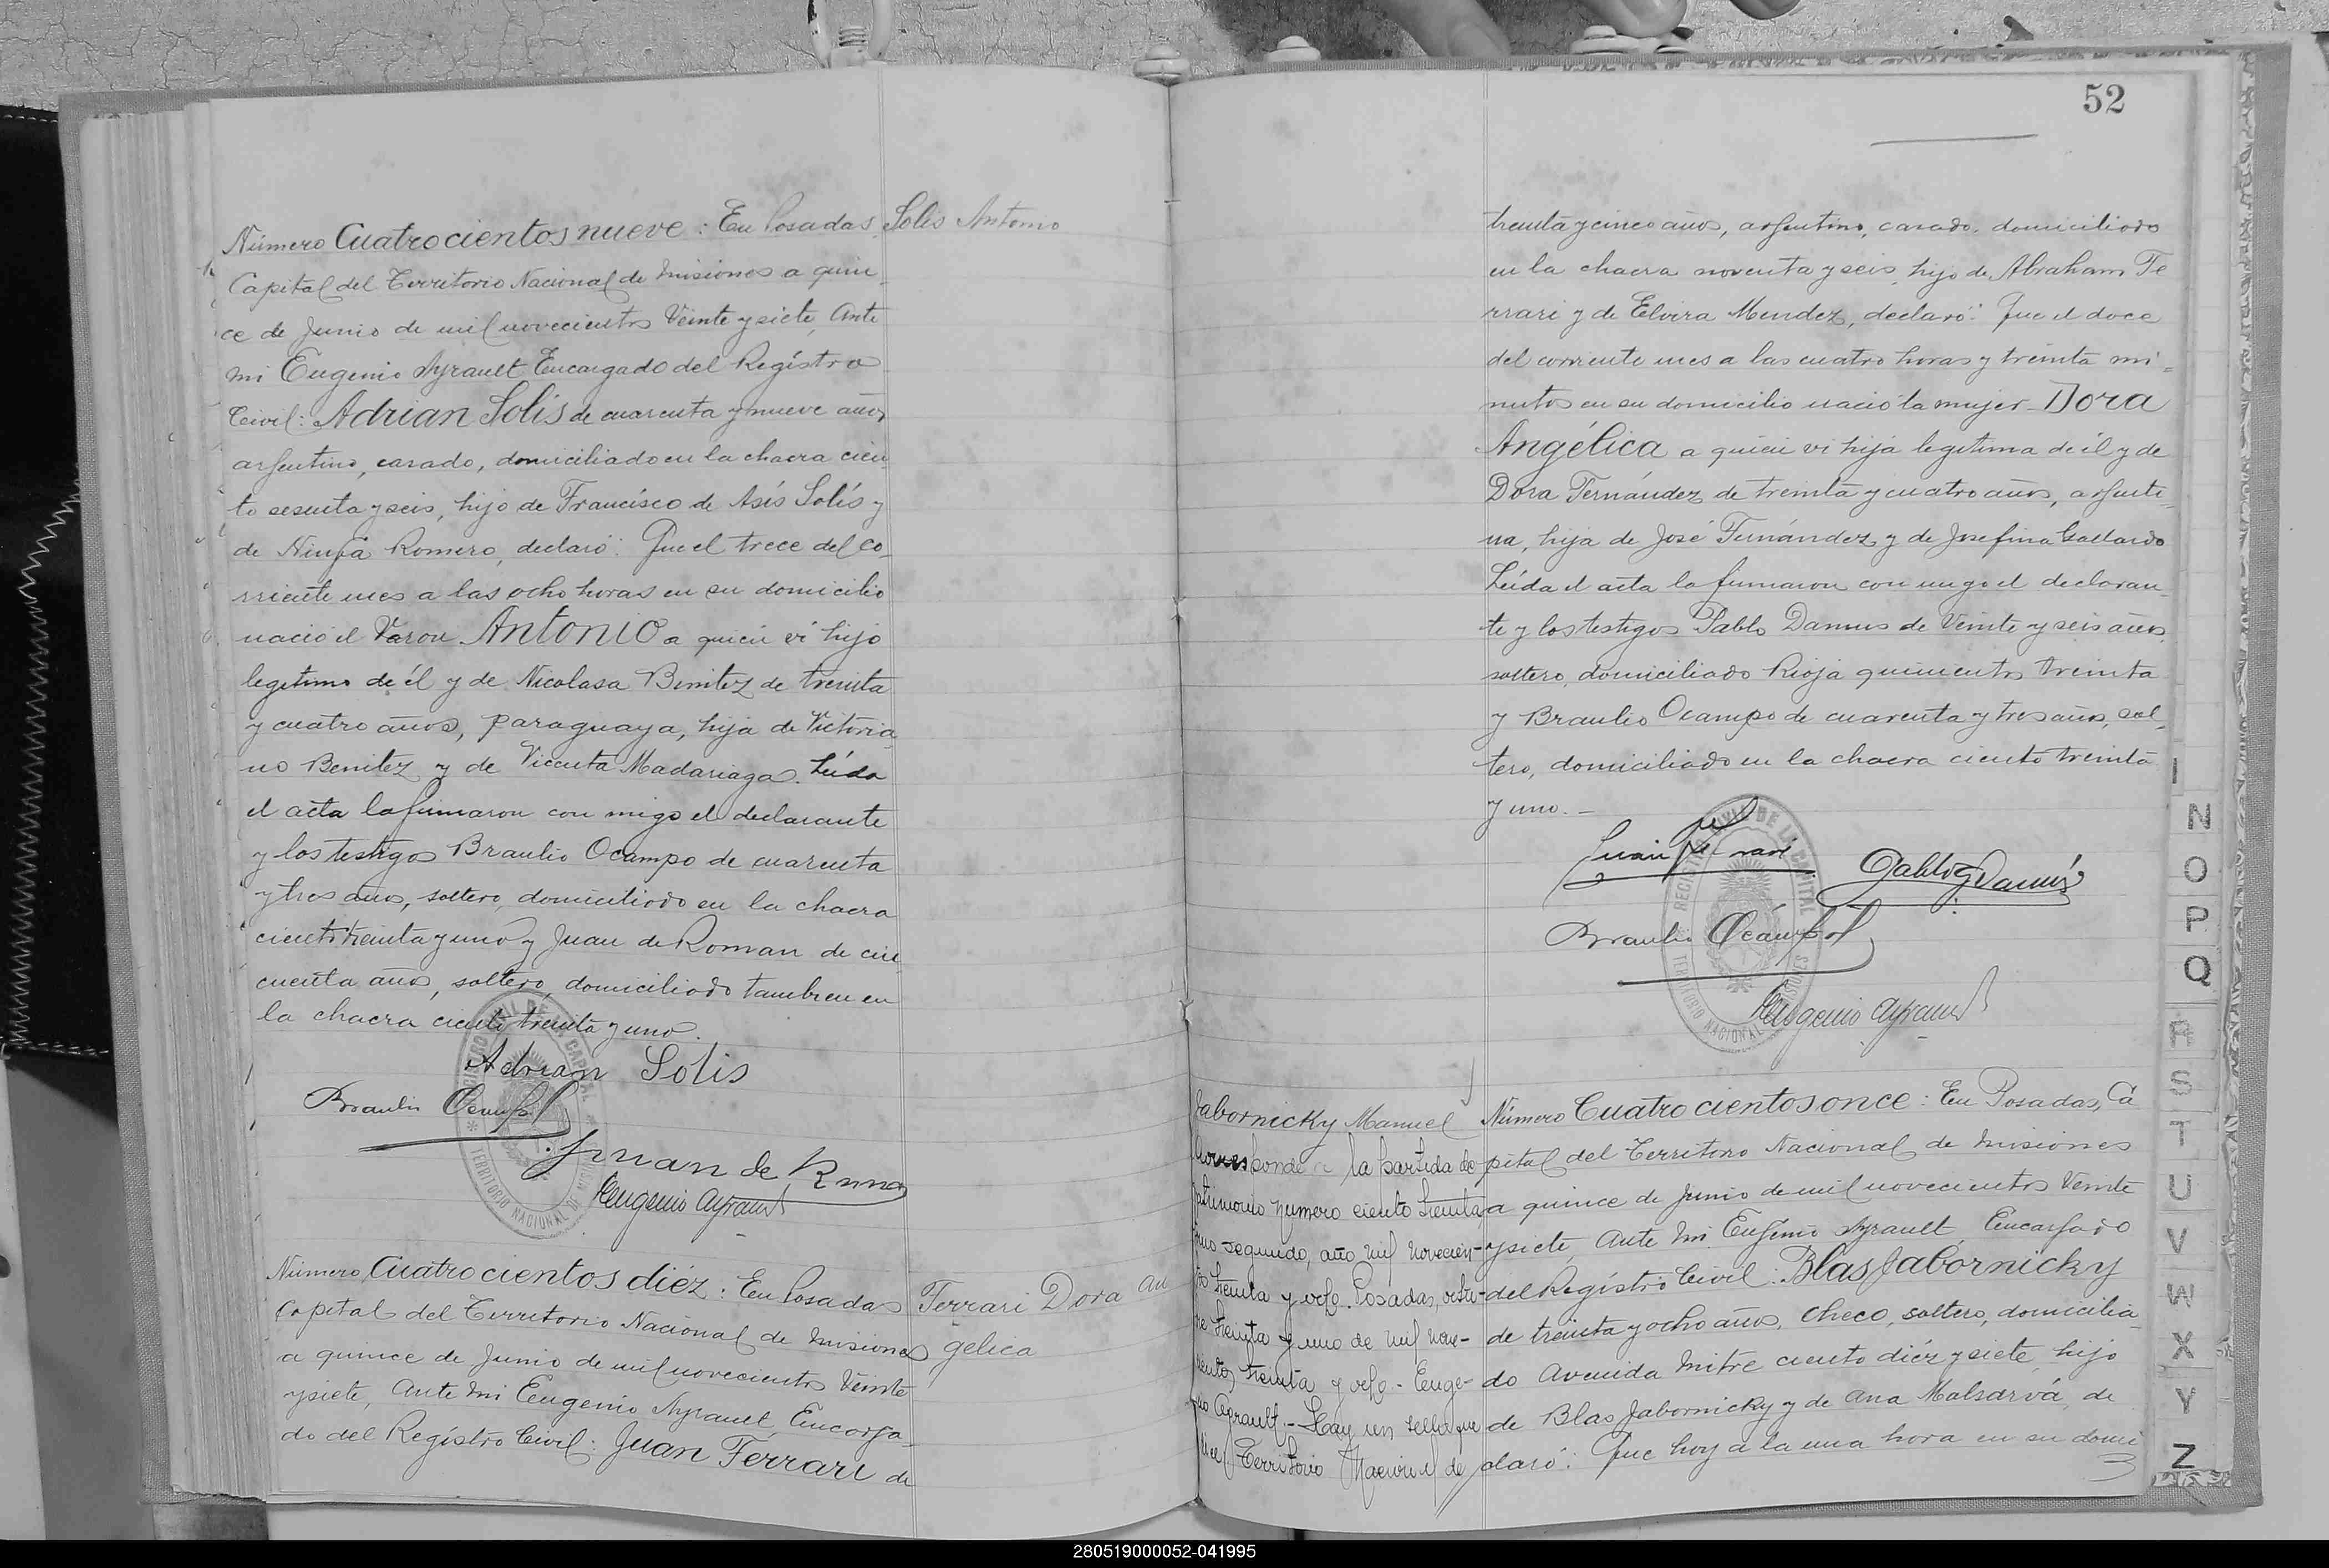 Número Cuatrocientos nueve: En Posadas
Solis Antonio
Capital del Territorio Nacional de Misiones a quin
ce de Junio de mil novecientos Veinte y siete, Ante
mi Eugenio Ayrault Encargado del Registro
Civil: Adrian Solís de cuarenta y nueve años,
argentino, casado, domiciliado en la chacra cien
to sesenta y seis, hijo de Francisco de Asís Solís y
de Ninfa Romero, declaró: Que el trece del co
rriente mes a las ocho horas en su domicilio
nació el Varon Antonio a quien vi hijo
legitimo de él y de Nicolasa Benitez de treinta
y cuatro años, paraguaya, hija de Victoria
no Benitez y de Vicenta Madariaga. Leída
el acta la firmaron con migo el declarante
y los testigos Braulio Ocampo de cuarenta
y tres años, soltero, domiciliado en la chacra
ciento treinta y uno y Juan de Roman de cin
cuenta años, soltero, domiciliado tambien en
la chacra ciento treinta y uno.
Adrian Solis
Braulio Ocampo
Juan de Roman
Eugenio Ayrault
Número Cuatrocientos diéz: En Posadas
Ferrari Dora An
gelica
Capital del Territorio Nacional de Misiones
a quince de Junio de mil novecientos Veinte
y siete, Ante Mi Eugenio Ayrault, Encarga
do del Registro Civil: Juan Ferrari de
52
treinta y cinco años, argentino, casado, domiciliado
en la chacra noventa y seis, hijo de Abraham Fe
rrari y de Elvira Mendez, declaró: Que el doce
del corriente mes a las cuatro horas y treinta mi=
nutos en su domicilio nació la mujer Dora
Angélica a quien vi hija legitima de él y de
Dora Fernández de treinta y cuatro años, argenti
na, hija de José Fernández y de Josefina Gallardo
Leída el acta la firmaron con migo el declaran
te y los testigos Pablo Damus de Veinte y seis años
soltero, domiciliado Rioja quinientos treinta
y Braulio Ocampo de cuarenta y tres años, sol
tero, domiciliado en la chacra ciento treinta
y uno.-
Juan Ferrari
Pablo G Damús
Braulio Ocampo
Eugenio Ayrault
REGISTRO CIVIL DE LA CAPITAL
TERRITORIO NACIONAL DE MISIONES
Jabornicky Manuel
Corresponde a la partida de
matrimonio número ciento treinta,
tomo segundo, año mil novecien-
tos treinta y ocho. Posadas, octu-
bre treinta y uno de mil nove-
cientos treinta y ocho - Euge-
nio Ayrault - Hay un sello que
dice: Territorio Nacional de
Número Cuatrocientos once: En Posadas, Ca
pital del Territorio Nacional de Misiones
a quince de Junio de mil novecientos Veinte
y siete, Ante Mi Eugenio Ayrault, Encargado
del Registro Civil: Blas Jabornicky
de treinta y ocho años, Checo, soltero, domicilia
do Avenida Mitre ciento diéz y siete, hijo
de Blas Jabornicky y de Ana Malsarvá, de
claró: Que hoy a la una hora en su domi
I
N
O
P
Q
R
S
T
U
V
W
X
Y
Z
280519000052-041995